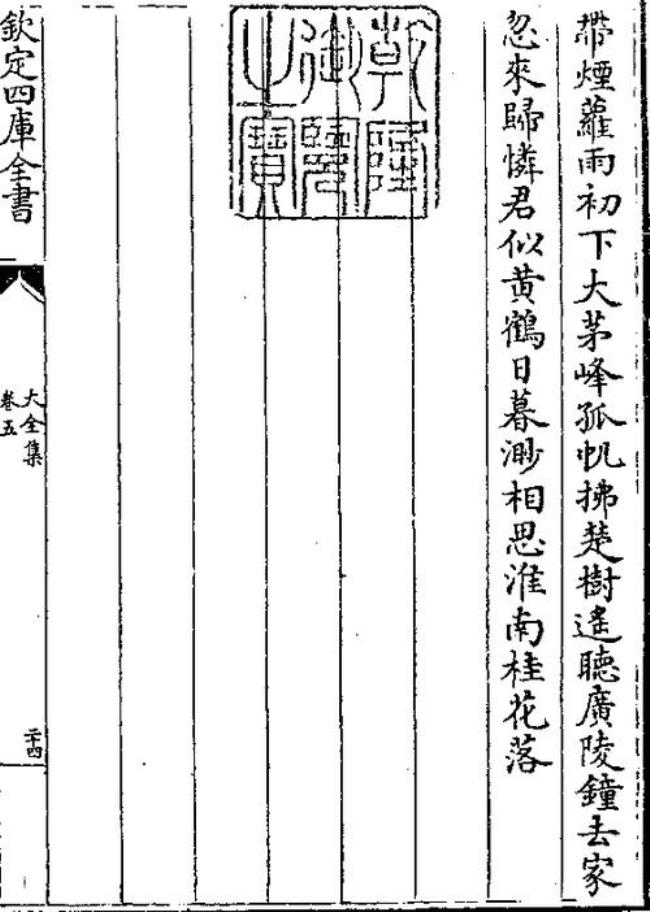 帶煙蘿雨初下大茅峰孤帆拂楚樹遙聽廣陵鐘去家
忽來歸憐君似黄鶴日暮渺相思淮南桂花落
乾隆
御覽
之寶
欽定四庫全書
大全集
卷五
二十四